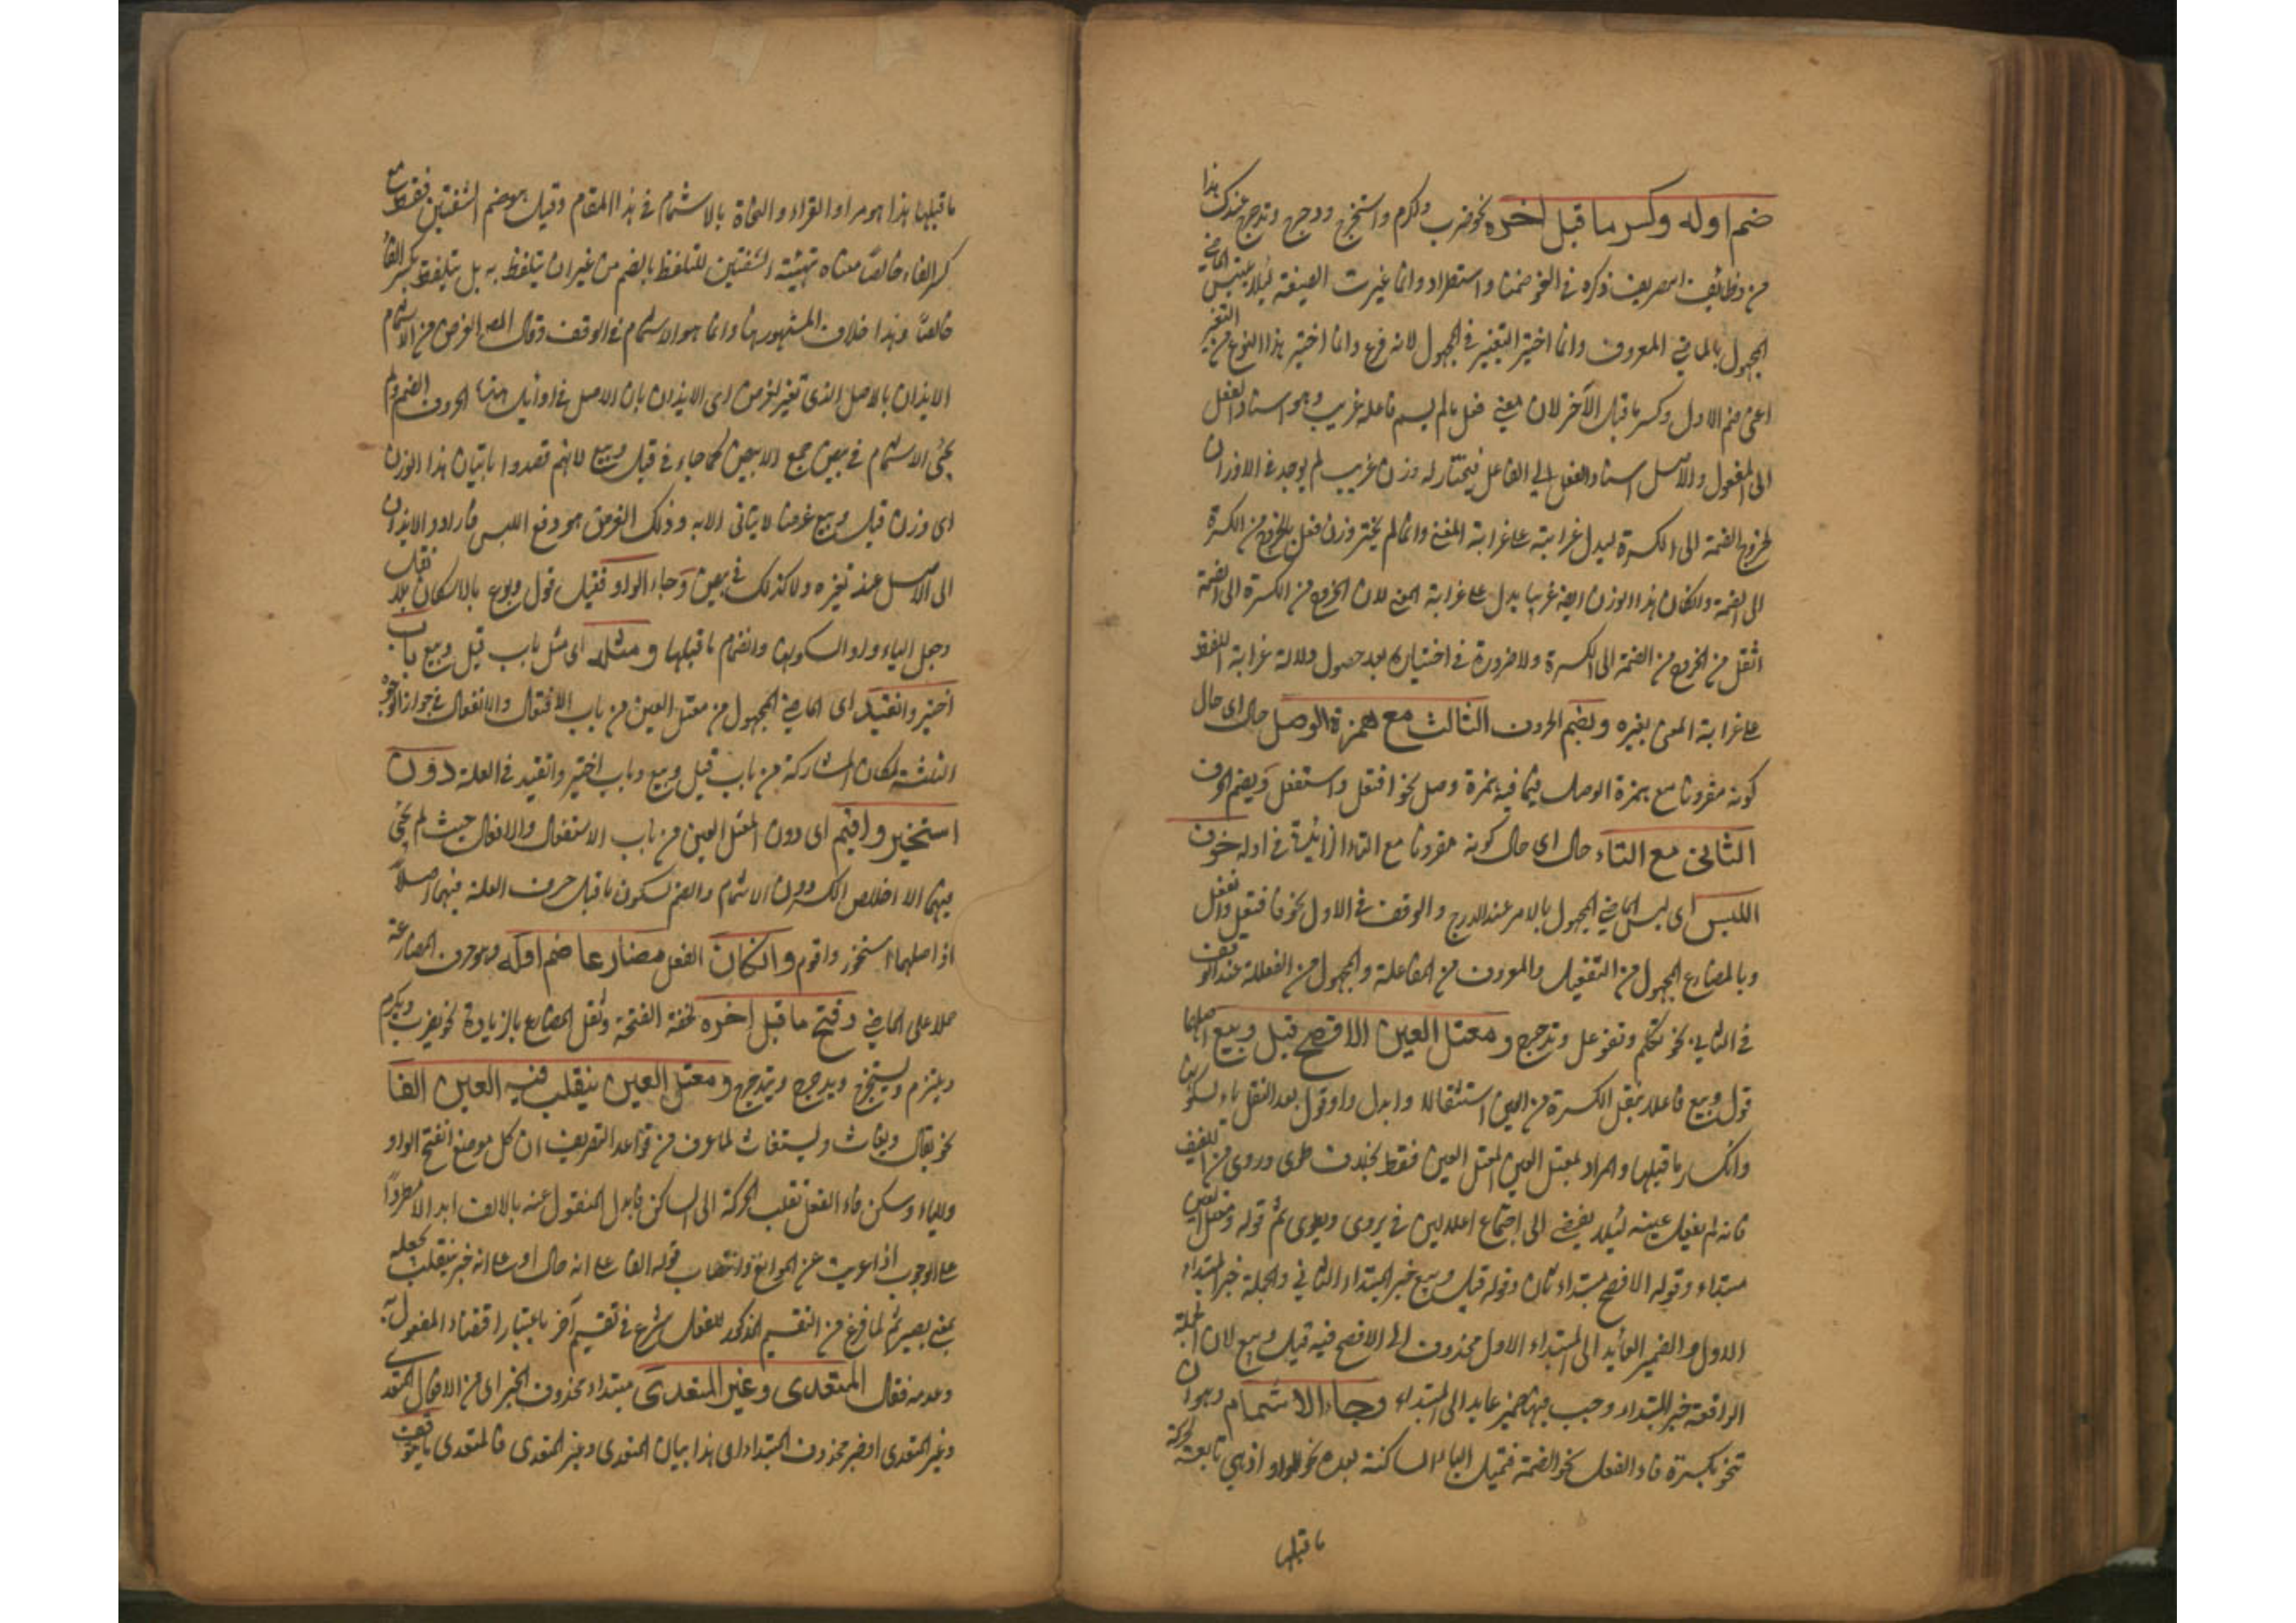 ضم اوله وكسر ما قبل اخره نحو ضرب واكرم واستخرج ودحرج وتدحرج عندك هذا
من وظائف التصريف ذكره في النحو ضمنا واستطرادا وانما غيرت الصيغة لئلا يلتبس الماضي
المجهول بالماضي المعروف وانما اختير التغيير في المجهول لانه فرع وانما اختير هذا النوع من التغيير
اعني ضم الاول وكسر ما قبل الآخر لان معنى فعل ما لم يسم فاعله غريب وهو اسناد الفعل
الى المفعول والاصل اسناد الفعل الى الفاعل فيختار له وزن غريب لم يوجد في الاوزان
لخروج الضمة الى الكسرة ليدل غرابته على غرابة المعنى وانما لم يختر وزن فعل بالخروج من الكسرة
الى الضمة وان كان هذا الوزن ايضا غريبا يدل على غرابة المعنى لان الخروج من الكسرة الى الضمة
اثقل من الخروج من الضمة الى الكسرة ولا ضرورة في اختياره بعد حصول دلالة غرابة اللفظ
على غرابة المعنى بغيره ويضم الحرف الثالث مع همزة الوصل حال اى حال
كونه مقرونا مع همزة الوصل فيما فيه همزة وصل نحو افتعل واستفعل ويضم الحرف
الثاني مع التاء حال اى حال كونه مقرونا مع التاء الزائدة في اوله خوف
اللبس اى لبس الماضي المجهول بالامر عند الدرج والوقف في الاول نحو فافتعل وانفعل
وبالمضارع المجهول من التفعيل والمعروف من المفاعلة والمجهول من الفعللة عند الوقف
في الثاني نحو تكلم وتفوعل وتدحرج ومعتل العين الافصح قيل وبيع اصلهما
قول وبيع فاعلا بنقل الكسرة من العين استثقالا وابدل واو قول بعد النقل ياء لسكونها
وانكسار ما قبلها والمراد بمعتل العين المعتل العين فقط بخلاف طوى وروى من اللفيف
فانه لم يعل عينه لئلا يفضي الى اجتماع اعلالين في يروى ويطوى ثم قوله ومعتل العين
مبتداء وقوله الافصح مبتداء ثان وقوله قيل وبيع خبر المبتداء الثاني والجملة خبر المبتداء
الاول والضمير العائد الى المبتداء الاول محذوف اى الافصح فيه قيل وبيع لان الجملة
الواقعة خبر المبتداء وجب فيها ضمير عايد الى المبتداء وجاء الاشمام وهو ان
تنحو بكسرة فاء الفعل نحو الضمة فتميل الياء الساكنة بعده نحو الواو اذ هي تابعة لحركة
ما قبلها
ما قبلها هذا هو مراد القراء والنحاة بالاشمام في هذا المقام وقيل هو ضم الشفتين فقط مع
كسر الفاء خالصا معناه تهيئة الشفتين للتلفظ بالضم من غير ان يتلفظ به بل يتلفظ بكسر الفاء
خالصا وهذا خلاف المشهور هنا وانما هو الاشمام في الوقف وقال المص الغرض من الاشمام
الايذان بالاصل الذى تغير لغرض اى الايذان بان الاصل في اوائل هذه الحروف الضم ولم
يجئ الاشمام في بيض جمع الابيض كما جاء في قيل وبيع لانهم قصدوا باتيان هذا الوزن
اى وزن قيل وبيع غرضا لا يتأتى الا به وذلك الغرض هو دفع اللبس فارادوا الايذان
الى الاصل عند تغيره ولا كذلك في بيض وجاء الواو فقيل قول وبوع بالاسكان بلا نقل
وجعل الياء واوا لسكونها وانضمام ما قبلها ومثله اى مثل باب قيل وبيع باب
اختير وانقيد اى الماضي المجهول من معتل العين من باب الافتعال والانفعال في جواز الوجوه
الثلثة لمكان المشاركة من باب قيل وبيع وباب اختير وانقيد في العلة دون
استخير واقيم اى دون المعتل العين من باب الاستفعال والافعال حيث لم يجئ
فيهما الا اخلاص الكسر دون الاشمام والضم لسكون ما قبل حرف العلة فيهما اصلا
اذ اصلهما استخير واقوم وان كان الفعل مضارعا ضم اوله وهو حرف المضارعة
حملا على الماضي وفتح ما قبل اخره لخفة الفتحة وثقل المضارع بالزيادة نحو يضرب ويكرم
ويلتزم ويستخرج ويدحرج ويتدحرج ومعتل العين ينقلب فيه العين الفا
نحو يقال ويباع ويستغاث لما عرف من قواعد التصريف ان كل موضع انفتح الواو
والياء وسكن فاء الفعل تقلب الحركة الى الساكن فابدل المنقول عنه بالالف ابدالا مطردا
على الوجوب اذا عريت عن الموانع وانتصاب قوله الفا على انه حال او على انه خبر ينقلب لجعله
بمعنى يصير ثم لما فرغ من التقسيم المذكور للفعل شرع في تقسيم آخر باعتبار اقتضاء المفعول به
وعدمه فقال المتعدى وغير المتعدى مبتداء محذوف الخبر اى من الافعال المتعدى
وغير المتعدى او خبر محذوف المبتداء اى هذا بيان المتعدى وغير المتعدى فالمتعدى ما يتوقف